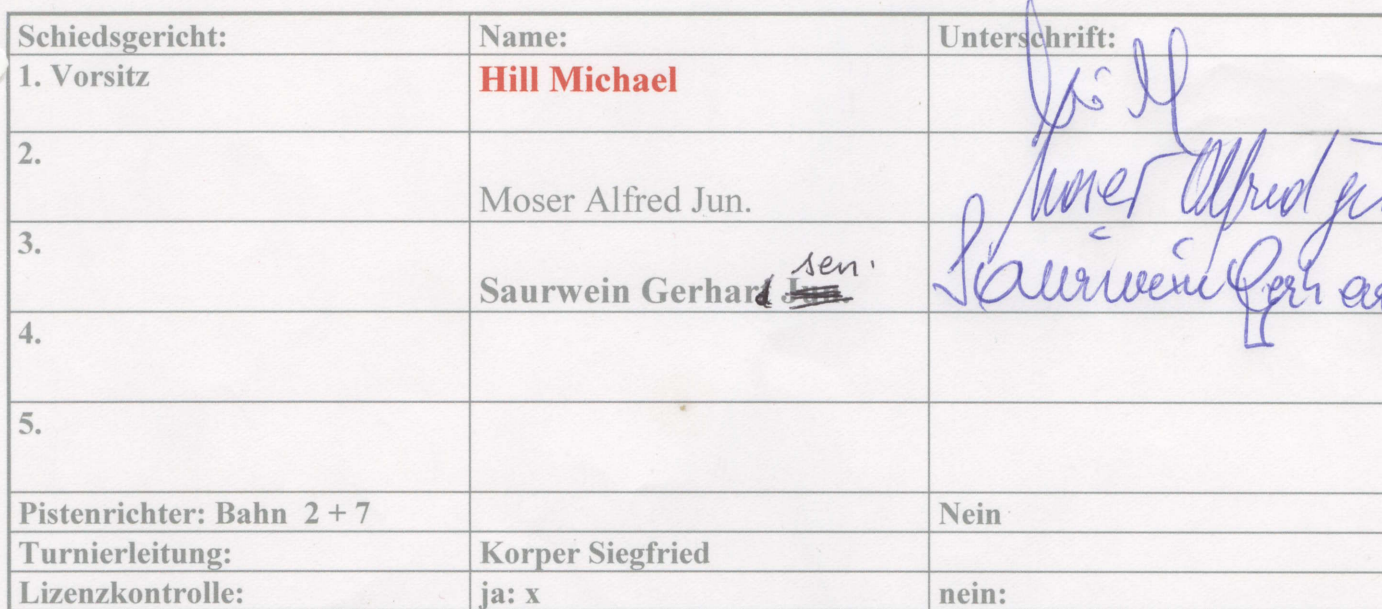 Schiedsgericht: Name: Unterschrift:
1. Vorsitz Hill Michael Hill
2. Moser Alfred Jun. Moser Alfred
3. Saurwein Gerhard sen. Saurwein
4.
5.
Pistenrichter: Bahn 2 + 7 Nein
Turnierleitung: Korper Siegfried
Lizenzkontrolle: ja: x nein: